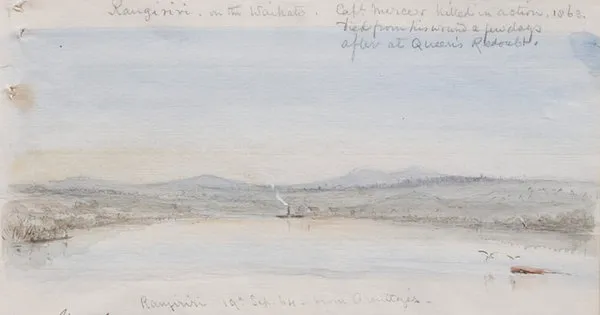 Rangiriri. on the Waikato. Capt Mercer killed in action, 1863.
Died from his wound a few days
after at Queen's Redoubt.
Rangiriri 19th Sep. 64 - from